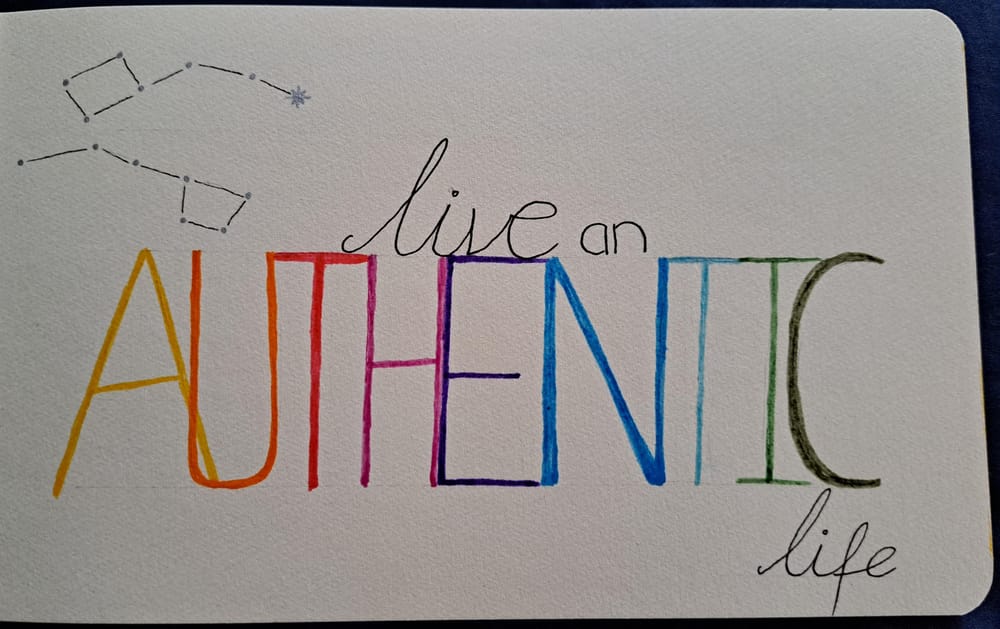 live an
AUTHENTIC
life